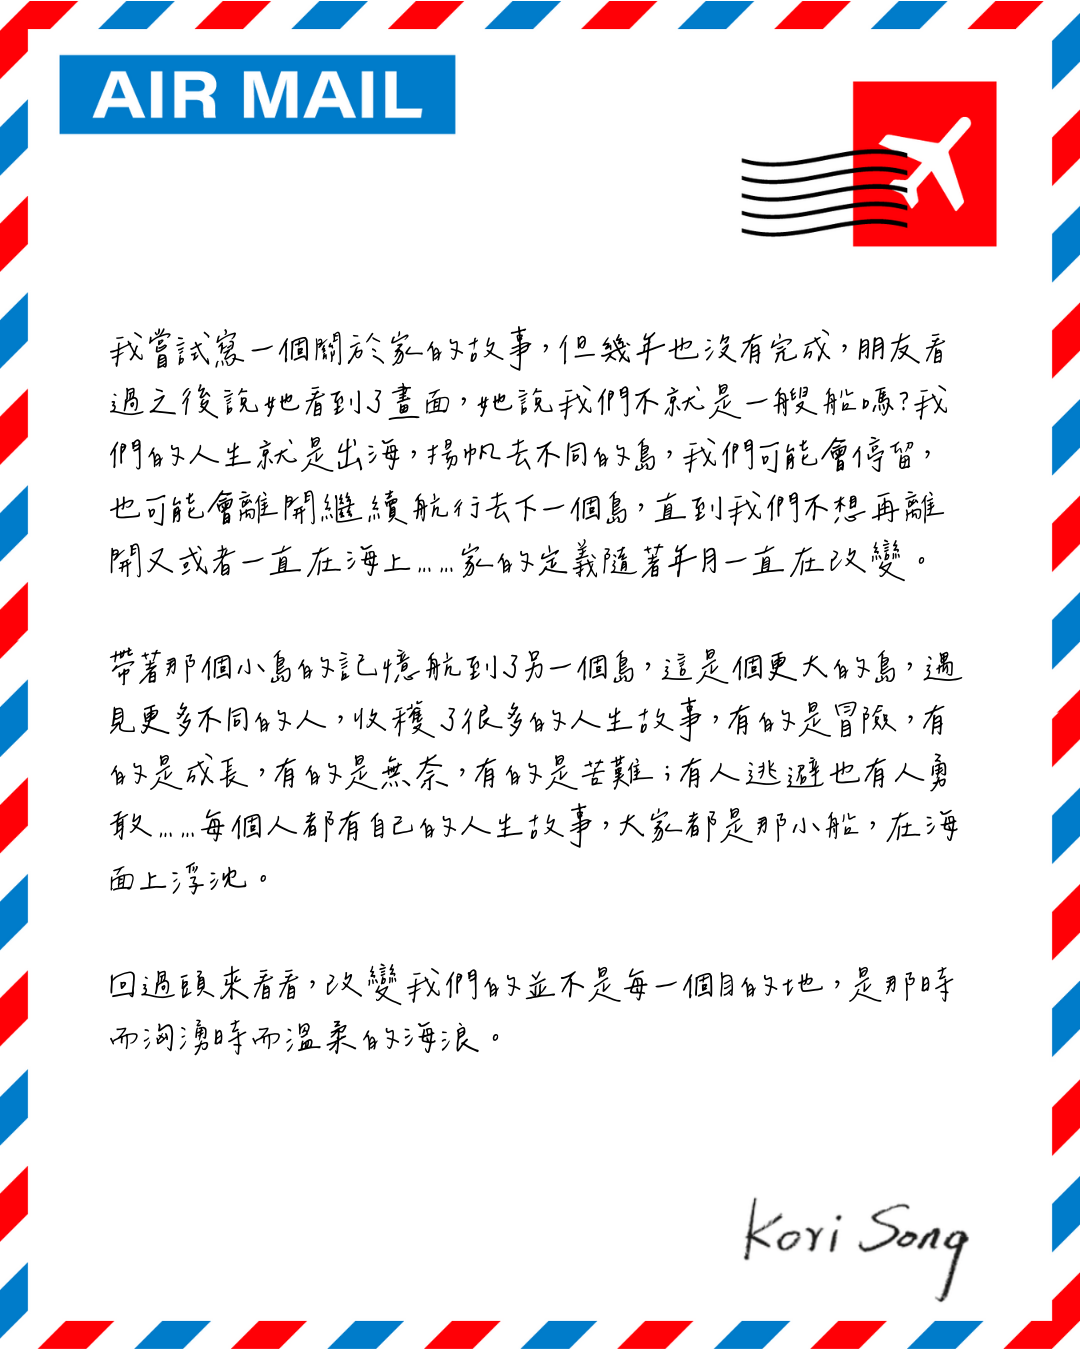 AIR MAIL
我嘗試寫一個關於家的故事，但幾年也沒有完成，朋友看
過之後說她看到了畫面，她說我們不就是一艘船嗎?我
們的人生就是出海，揚帆去不同的島，我們可能會停留，
也可能會離開繼續航行去下一個島，直到我們不想再離
開又或者一直在海上……家的定義隨著年月一直在改變。
帶著那個小島的記憶航到了另一個島，這是個更大的島，遇
見更多不同的人，收穫了很多的人生故事，有的是冒險，有
的是成長，有的是無奈，有的是苦難；有人逃避也有人勇
敢……每個人都有自己的人生故事，大家都是那小船，在海
面上浮沈。
回過頭來看看，改變我們的並不是每一個目的地，是那時
而洶湧時而溫柔的海浪。
Kori Song